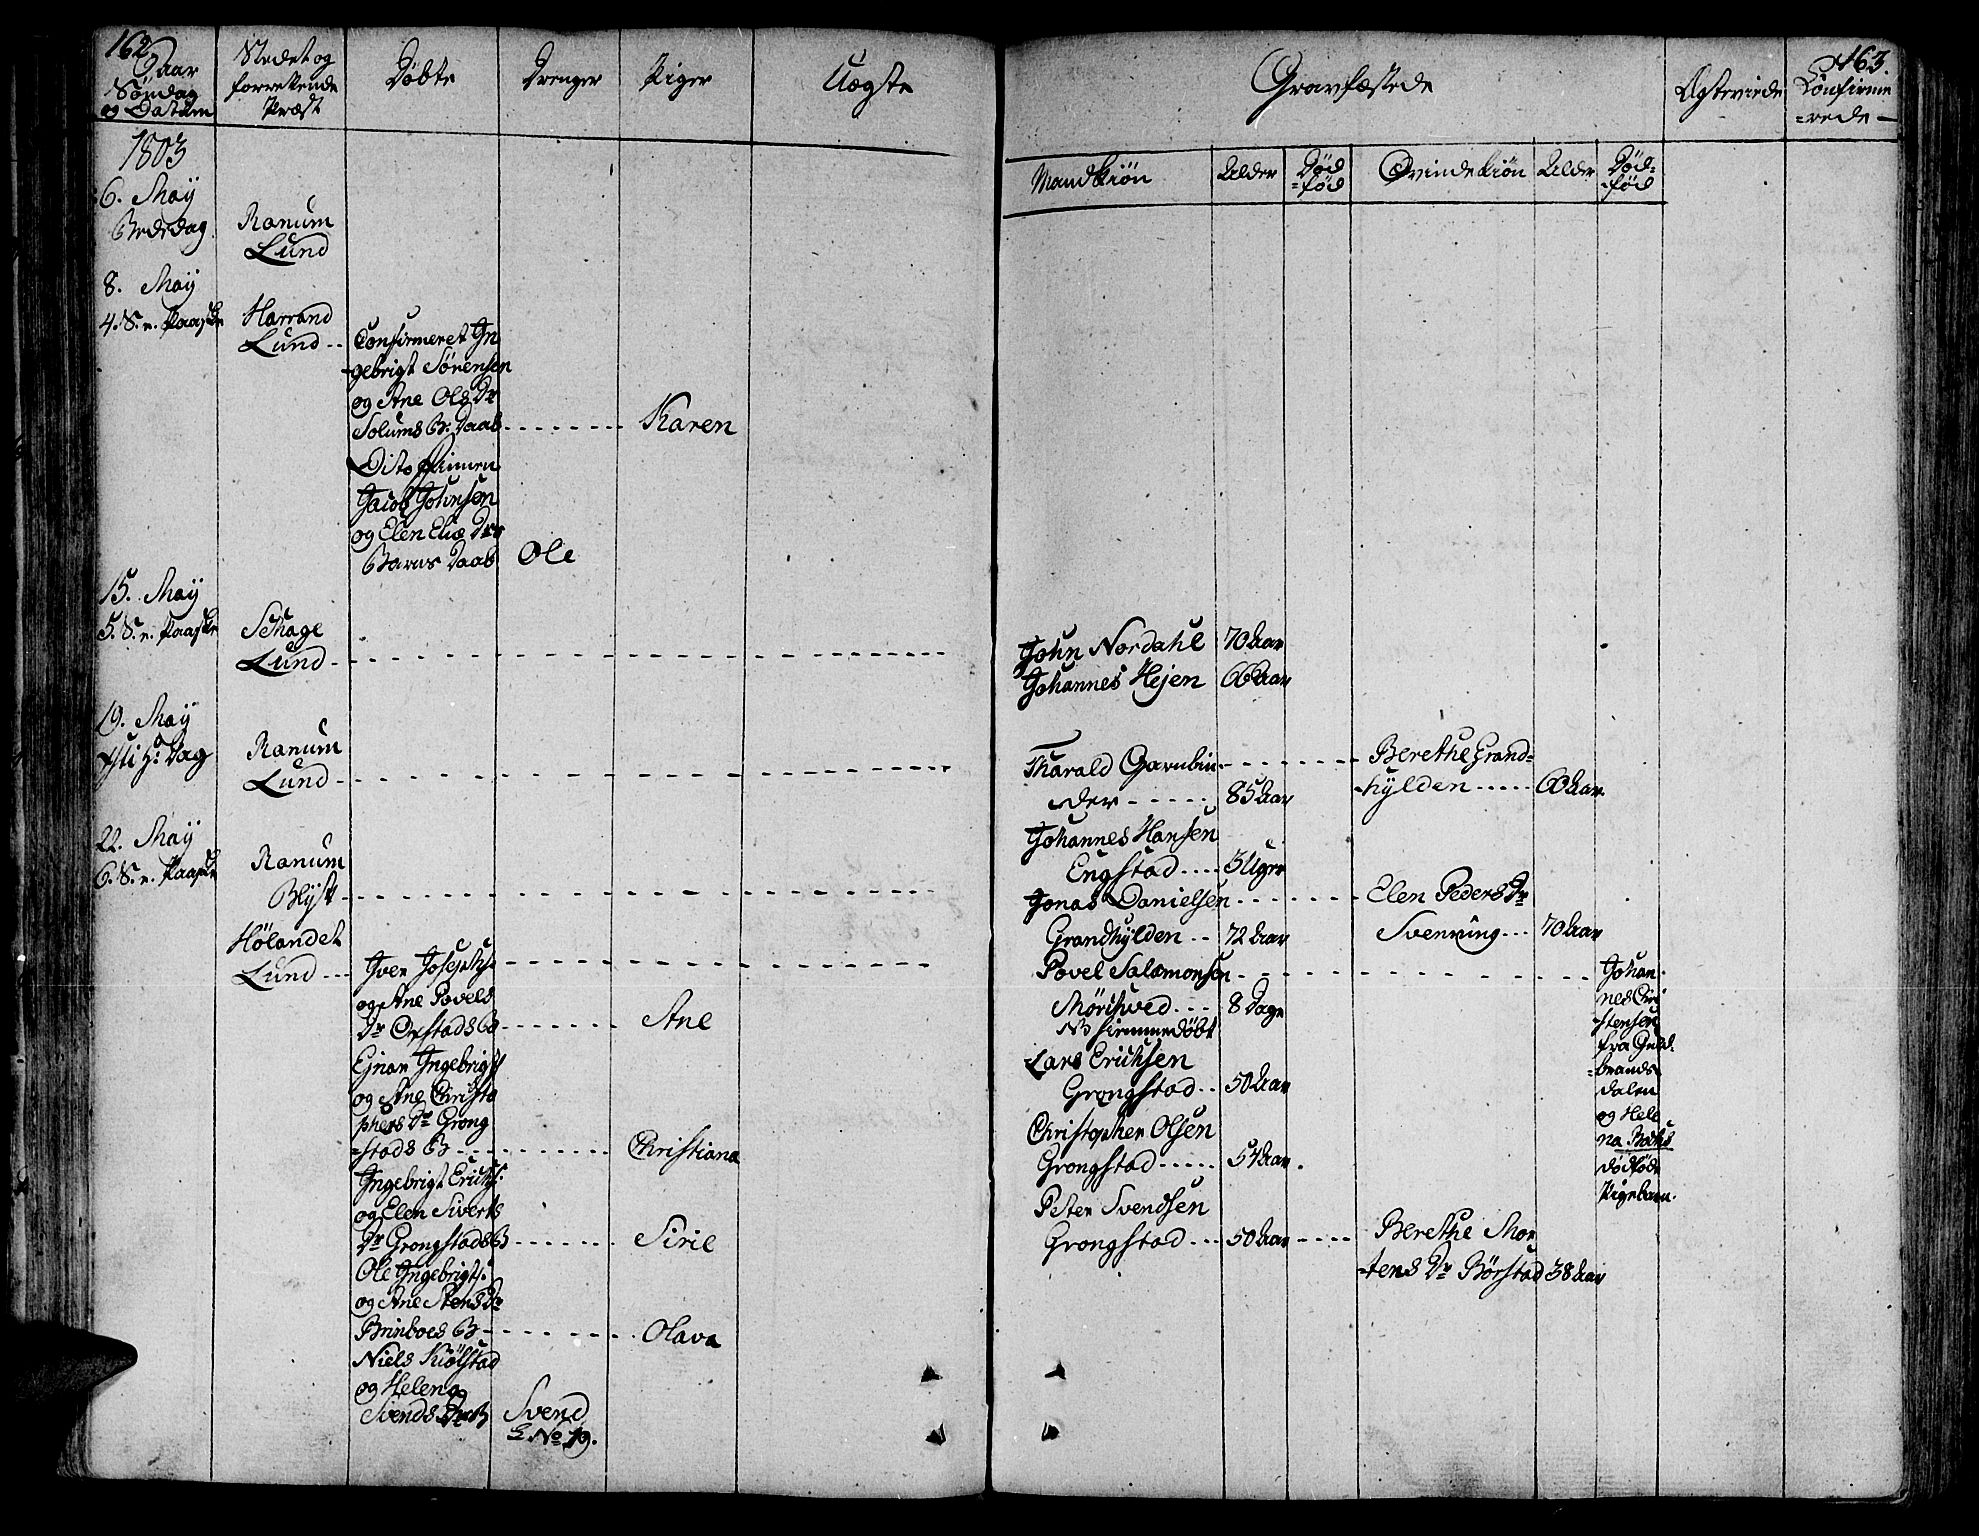 162
Aar
Søndag
og Datum
Stedet og
forrettende
Præst
Døbte
Drenger
Piger
Uægte
1803
6. Maÿ
Bededag
Ranum
Lund
8. Maÿ
4. S. e. Paaske
Harrand
Lund
Confirmeret In
gebrigt Sørensen
og Ane Ols Dr
Solums B. Daab
Karen
Dito
Jacob Johnsen
og Elen Eliæ Dr
Barns Daab
Ole
15. Maÿ
5. S. e. Paaske
Schage
Lund
19. Maÿ
Chti H. Dag
Ranum
Lund
22. Maÿ
6. S. e. Paaske
Ranum
Blÿst
Hølandet
Lund
Iver Josephs.
og Ane Povels
Dr Opstads B
Ane
Ejnar Ingebrigts
og Ane Christo
phers Dr Grong
=stads B
Christiana
Ingebrigt Erichs.
og Elen Siverts
Dr Grongstads B
Sirie
Ole Ingebrigts.
og Ane Stens Dr
Brinboes B
Olava
Niels Kiølstad
og Helena
Svends Dr B
Svend
L No 19.
163.
Gravfæstede
Ægteviede
Confirme
=rede
Mandkiøn
Alder
Død
=fød
Qvindekiøn
Alder
Død=
fød
John Nordahl 70 Aar
Johannes Hejen 66 Aar
Tharald Garnbin
der 85 Aar
Berethe Grand=
hÿlden 60 Aar.
Johannes Hansen
Engstad 3 Uger
Jonas Danielsen
Grandhÿlden 72 Aar
Elen Peders Dr
Svenning 70 Aar
Povel Salamonsen
Mørchved 8 Dage
NB hiemmedøbt
Johan
nes Chri
stensen
fra Guld
=brands
dalen
og Hele
na Bachs
dødfødt
Pigebarn.
Lars Erichsen
Grongstad 50 Aar
Christopher Olsen
Grongstad 54 Aar.
Peter Svendsen
Grongstad 50 Aar
Berethe Mor
=tens Dr Børstad 38 Aar